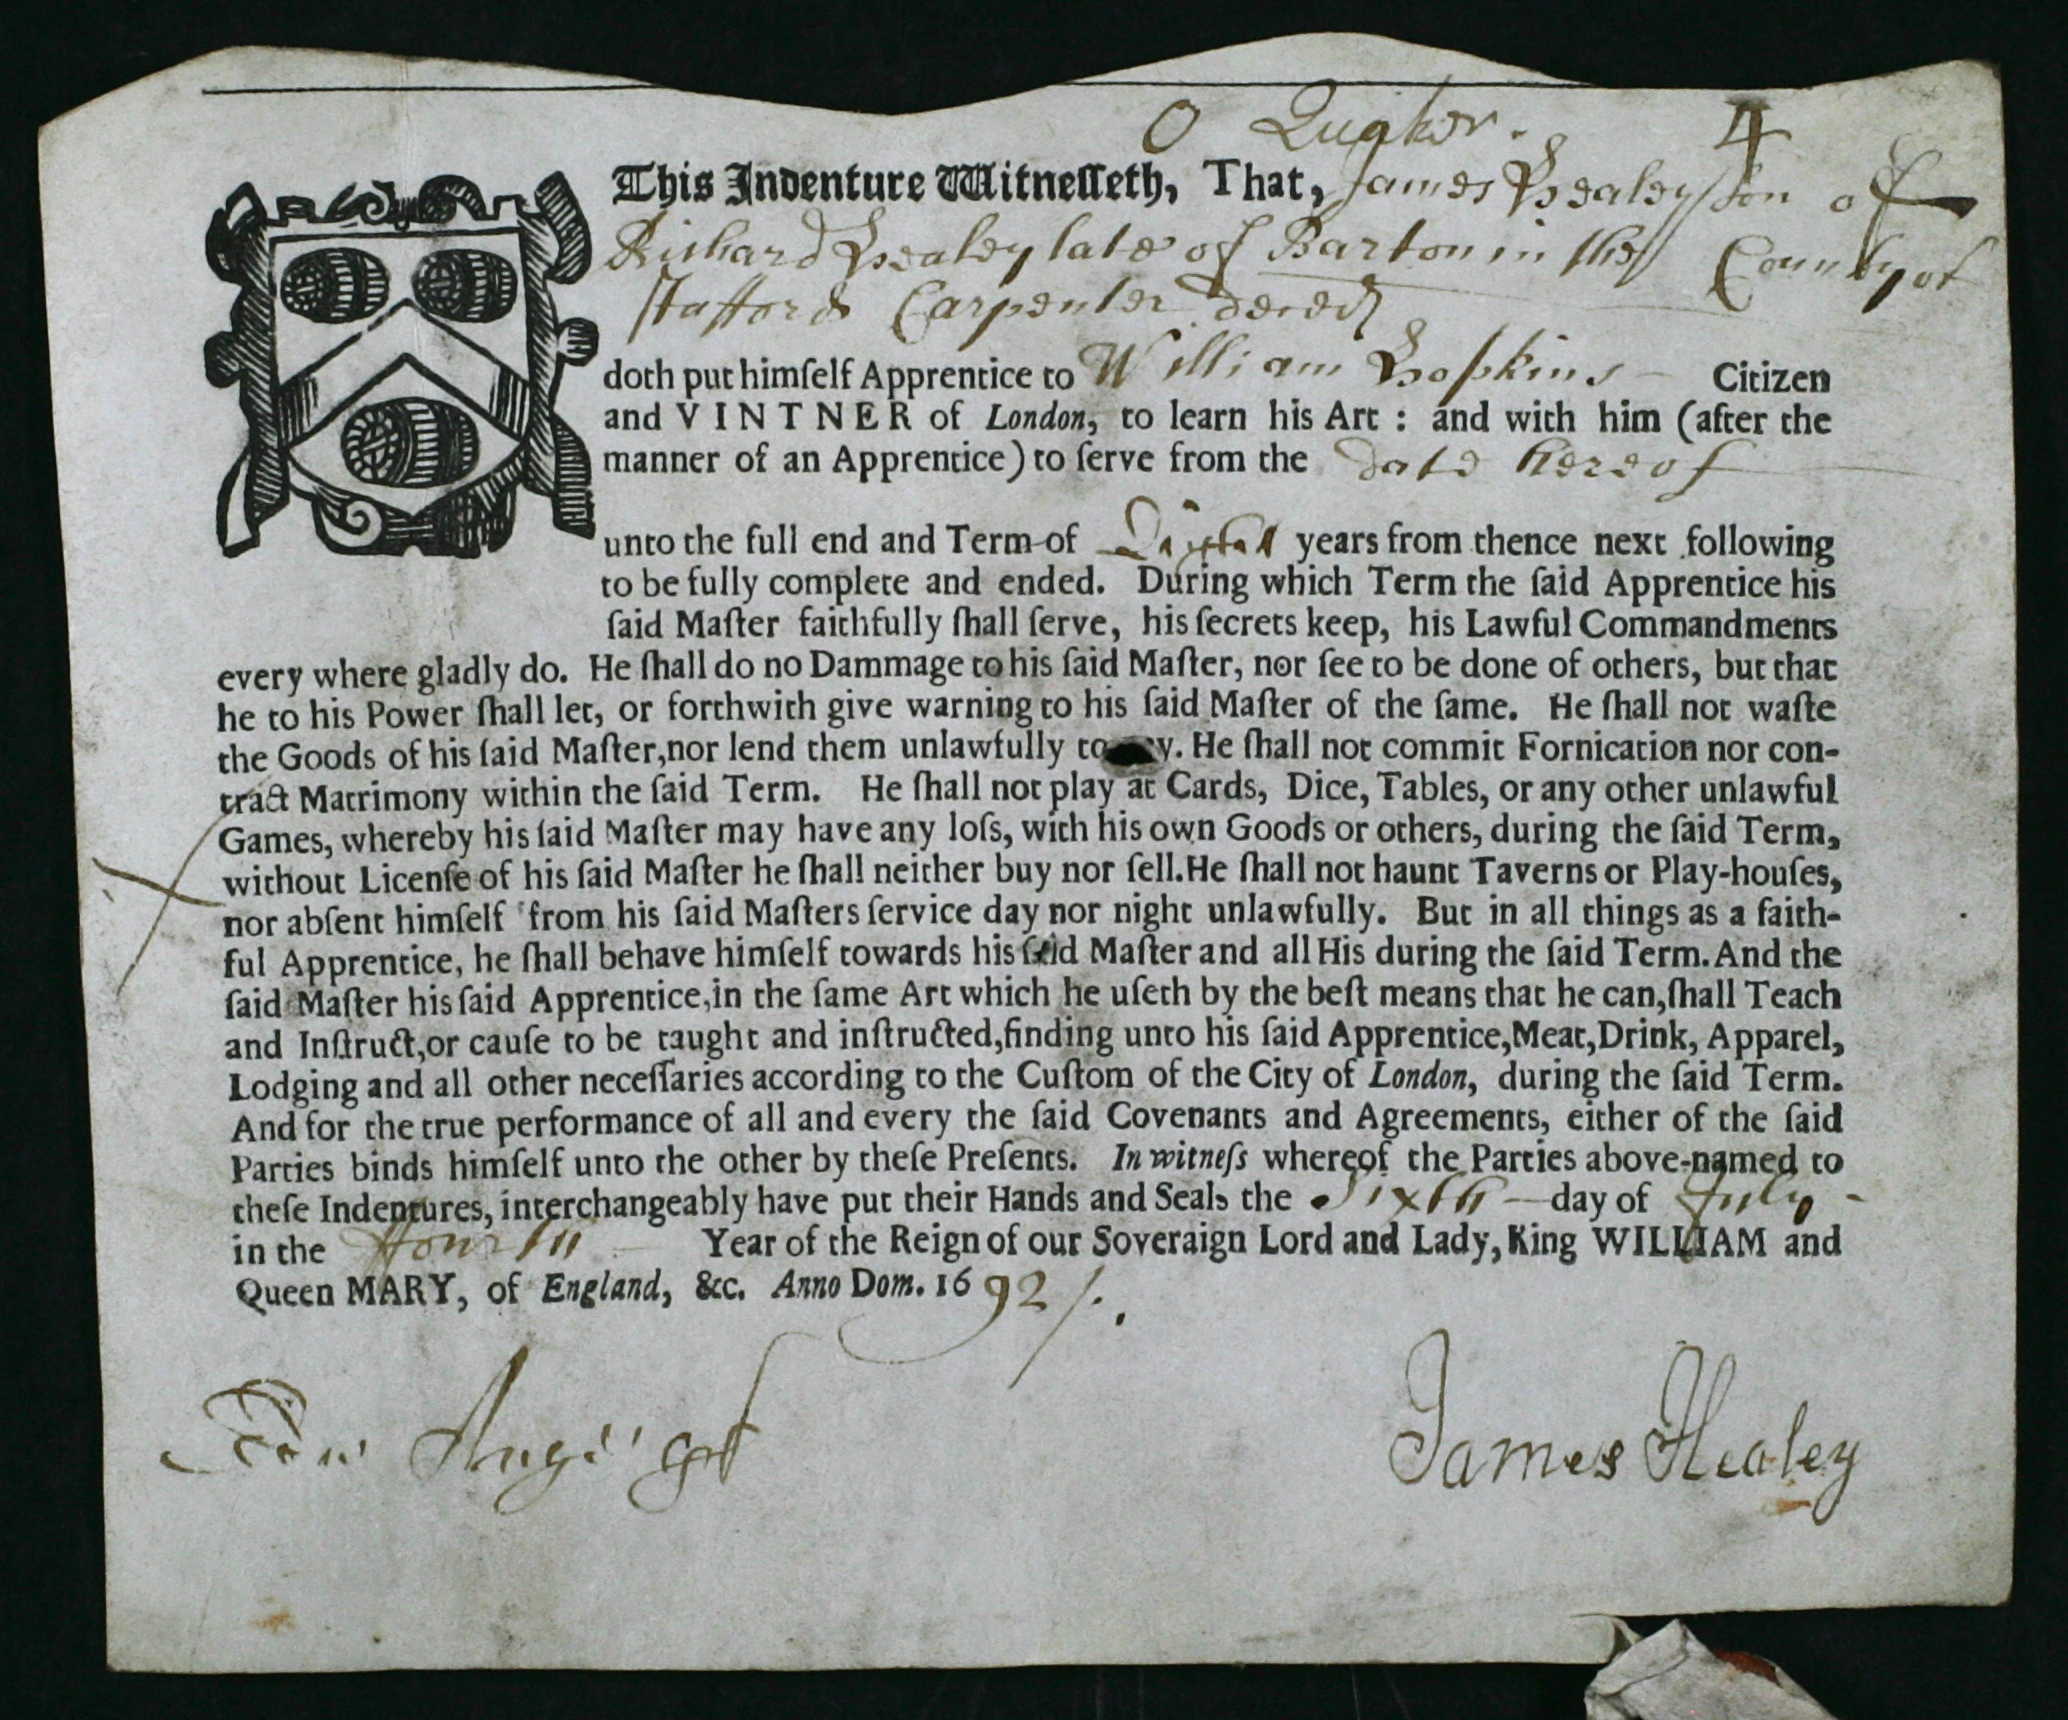 O Quaker. 4
This Indenture Witneſſeth, That, James Healey son of
Richard Healey late of Barton in the County of
Stafford Carpenter deced
doth put himſelf Apprentice to William Hopkins Citizen
and VINTNER of London, to learn his Art : and with him (after the
manner of an Apprentice) to ſerve from the date hereof
unto the full end and Term of years from thence next following
to be fully complete and ended. During which Term the ſaid Apprentice his
ſaid Maſter faithfully ſhall ſerve, his ſecrets keep, his Lawful Commandments
every where gladly do. He ſhall do no Dammage to his ſaid Maſter, nor ſee to be done of others, but that
he to his Power ſhall let, or forthwith give warning to his ſaid Maſter of the ſame. He ſhall not waſte
the Goods of his ſaid Maſter, nor lend them unlawfully to y. He ſhall not commit Fornication nor con-
tract Matrimony within the ſaid Term. He ſhall not play at Cards, Dice, Tables, or any other unlawful
Games, whereby his ſaid Maſter may have any loſs, with his own Goods or others, during the ſaid Term,
without Licenſe of his ſaid Maſter he ſhall neither buy nor ſell. He ſhall not haunt Taverns or Play-houſes,
nor abſent himſelf from his ſaid Maſters ſervice day nor night unlawfully. But in all things as a faith-
ful Apprentice, he ſhall behave himſelf towards his ſaid Maſter and all His during the ſaid Term. And the
ſaid Maſter his ſaid Apprentice, in the ſame Art which he uſeth by the beſt means that he can, ſhall Teach
and Inſtruct, or cauſe to be taught and inſtructed, finding unto his ſaid Apprentice, Meat, Drink, Apparel,
Lodging and all other neceſſaries according to the Cuſtom of the City of London, during the ſaid Term.
And for the true performance of all and every the ſaid Covenants and Agreements, either of the ſaid
Parties binds himſelf unto the other by theſe Preſents. In witneſs whereof the Parties above-named to
theſe Indentures, interchangeably have put their Hands and Seals the Sixth day of July
in the ffourth Year of the Reign of our Soveraign Lord and Lady, King WILLIAM and
Queen MARY, of England, &c. Anno Dom. 1692/.
James Healey